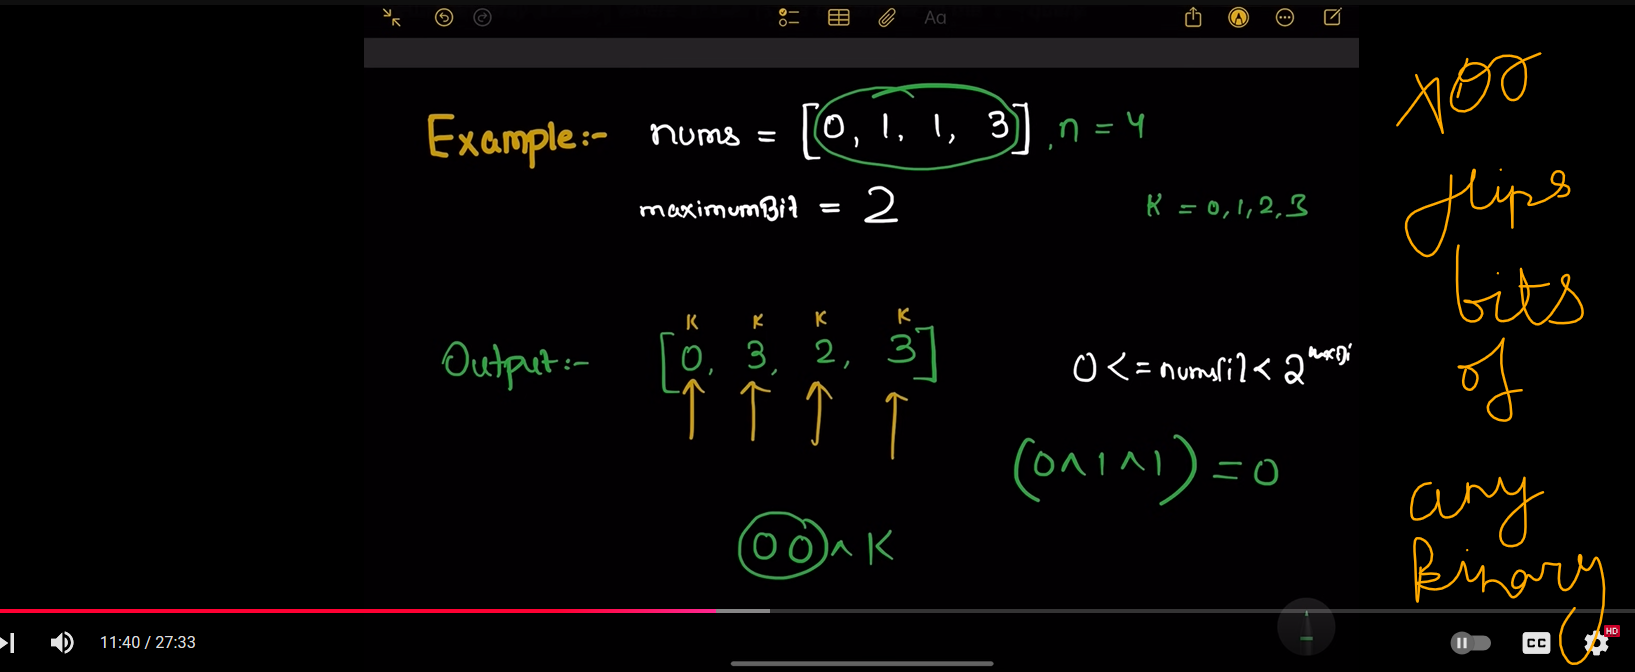 Aa
Example:- nums = [0, 1, 1, 3], n = 4
maximumBit = 2
K = 0,1,2,3
K K K K
Output:- [0, 3, 2, 3]
0 <= nums[i] < 2
(0^1^1) = 0
00^K
xor
flips
bits
of
any
Binary
11:40 / 27:33
CC
HD